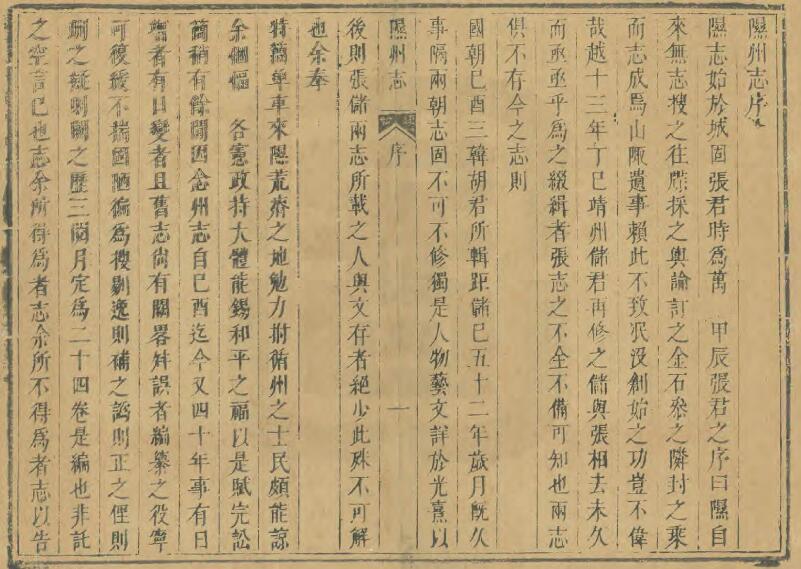 隰州志序
隰志始於城固張君時為萬 甲辰張君之序曰隰自
來無志搜之往牒採之輿論訂之金石叅之隣封之乗
而志成焉山陬遺事賴此不致泯没創始之功豈不偉
哉越十三年丁巳靖州儲君再修之儲與張相去未久
而亟亟乎為之綴緝者張志之不全不備可知也兩志
俱不存今之志則
國朝巳酉三韓胡君所輯距儲巳五十二年歲月旣久
事隔兩朝志固不可不修獨是人物藝文詳於光熹以
隰州志 序 一
後則張儲兩志所載之人與文存者絶少此殊不可解
也余奉
特簡單車來隰荒瘠之地勉力拊循州之士民頗能諒
余悃愊 各憲政持大體能錫和平之福以是賦完訟
簡稍有餘閒因念州志自巳酉迄今又四十年事有日
增者有日變者且舊志尚有闕畧舛誤者編纂之役寧
可復緩不揣固陋徧為搜剔逸則補之譌則正之俚則
刪之疑則闕之歷三閲月定為二十四卷是編也非託
之空言巳也志余所得為者志余所不得為者志以告